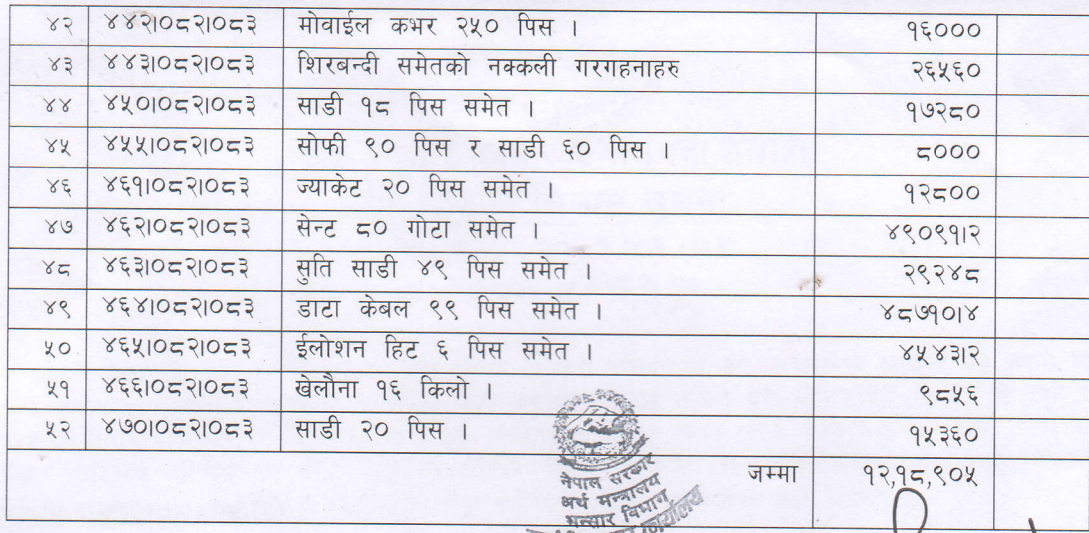 ४२ ४४२।०८२।०८३ मोवाईल कभर २५० पिस । १६०००
४३ ४४३।०८२।०८३ शिरबन्दी समेतको नक्कली गरगहनाहरु २६५६०
४४ ४५०।०८२।०८३ साडी १८ पिस समेत । १७२८०
४५ ४५५।०८२।०८३ सोफी ९० पिस र साडी ६० पिस । ८०००
४६ ४६१।०८२।०८३ ज्याकेट २० पिस समेत । १२८००
४७ ४६२।०८२।०८३ सेन्ट ८० गोटा समेत । ४९०९१।२
४८ ४६३।०८२।०८३ सुति साडी ४९ पिस समेत । २९२४८
४९ ४६४।०८२।०८३ डाटा केबल ९९ पिस समेत । ४८७१०।४
५० ४६५।०८२।०८३ ईलोशन हिट ६ पिस समेत । ४५४३।२
५१ ४६६।०८२।०८३ खेलौना १६ किलो । ९८५६
५२ ४७०।०८२।०८३ साडी २० पिस । १५३६०
जम्मा १२,१८,९०५
नेपाल सरकार
अर्थ मन्त्रालय
भन्सार विभाग
कार्यालय